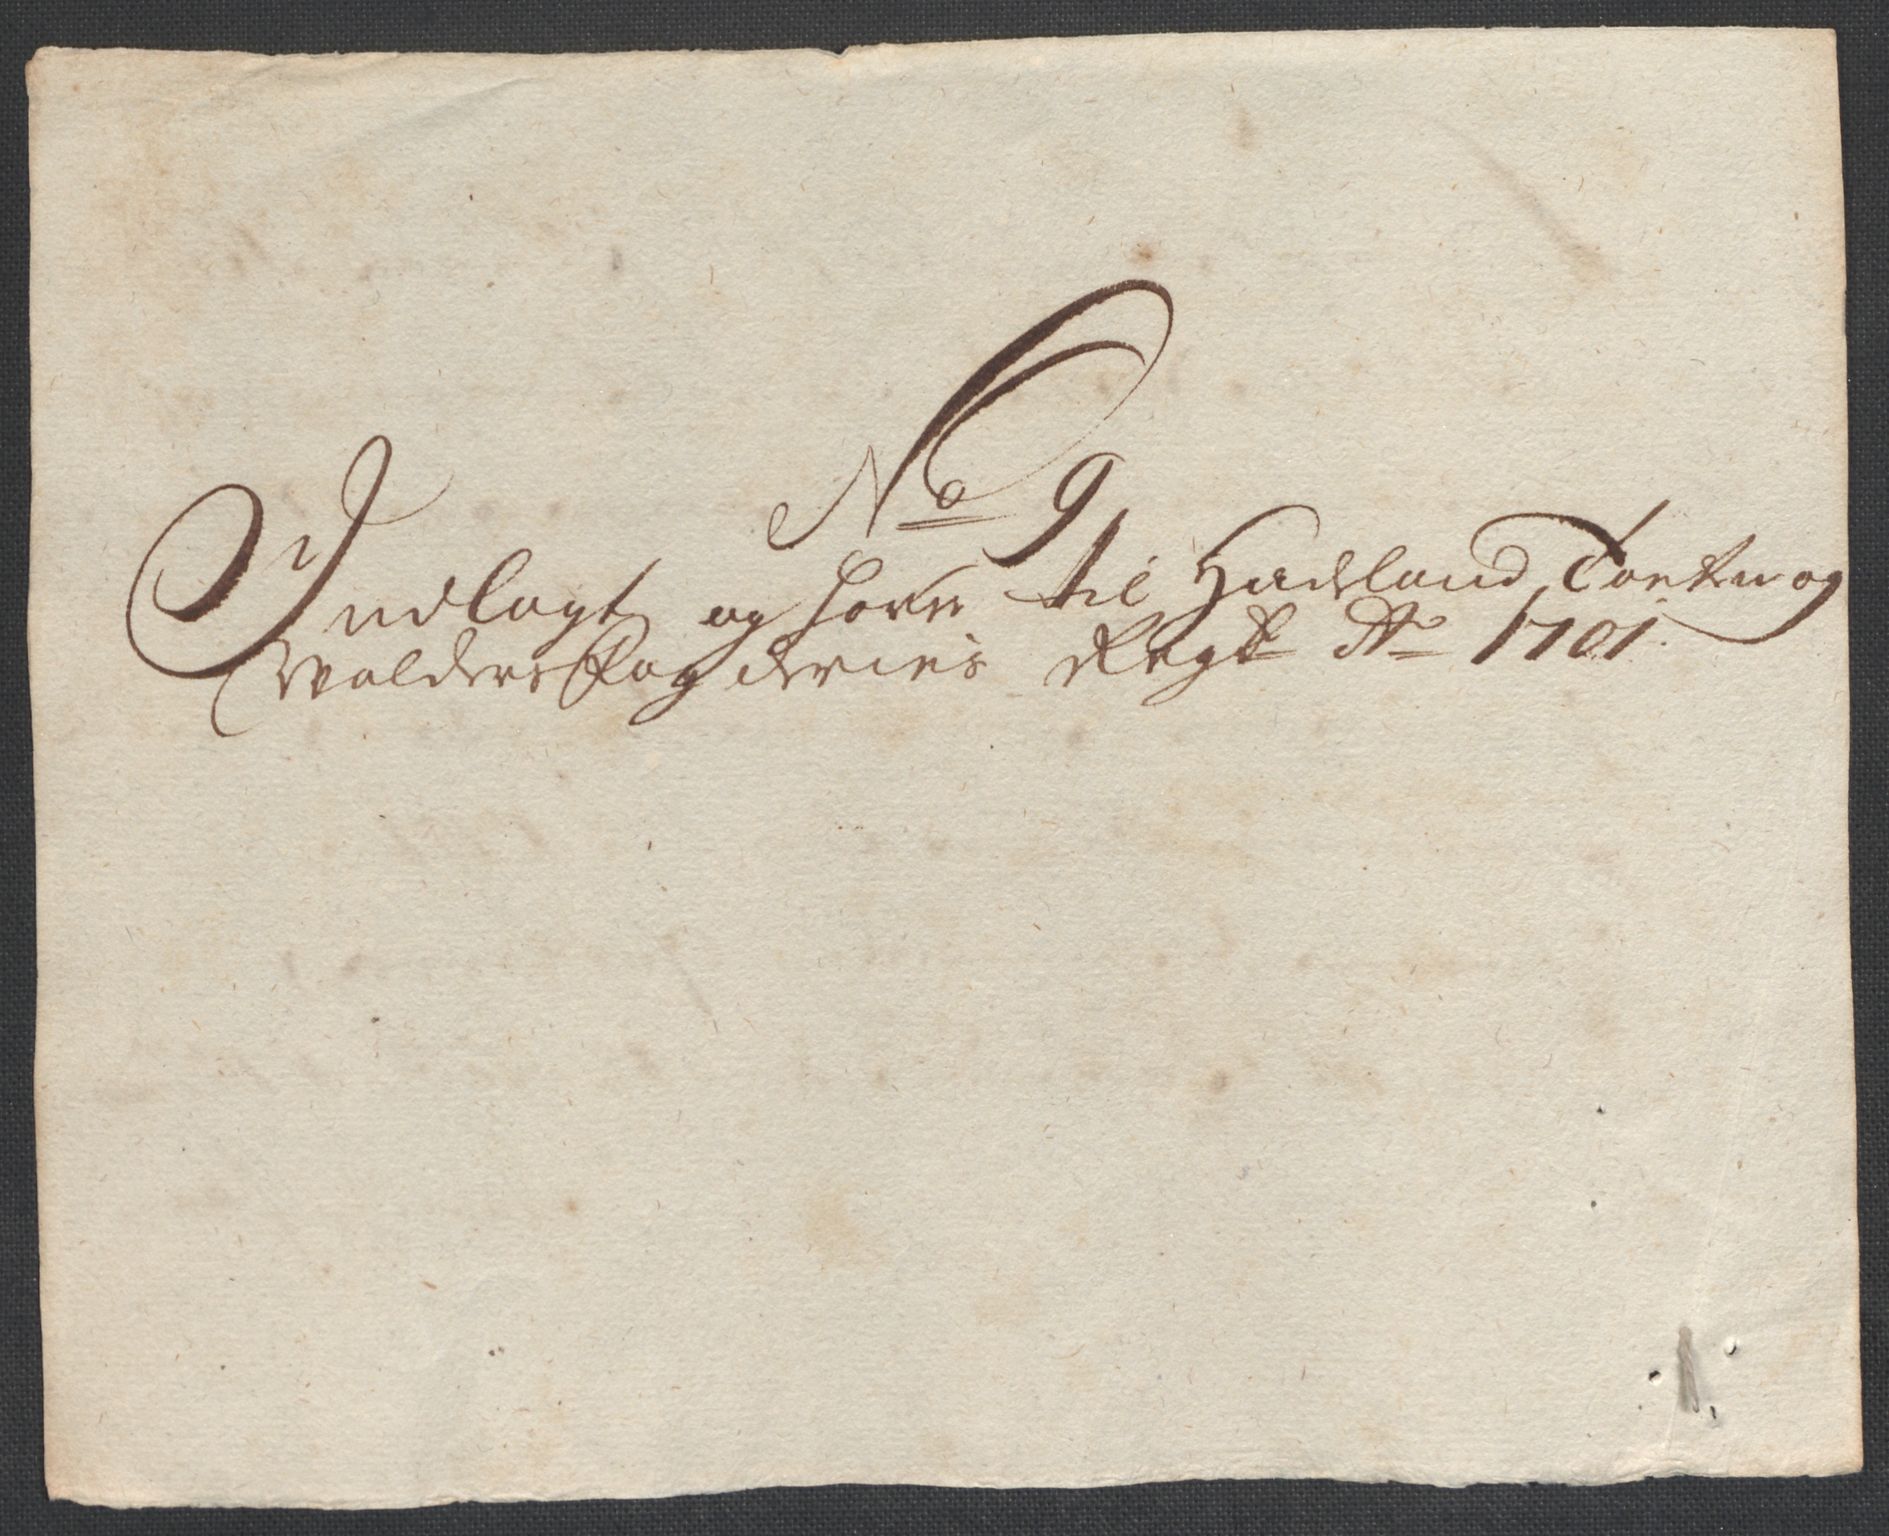 No 9
Indlagt og hører til Hadeland Toeten og
Walders Fogderies Regsk Ao 1701